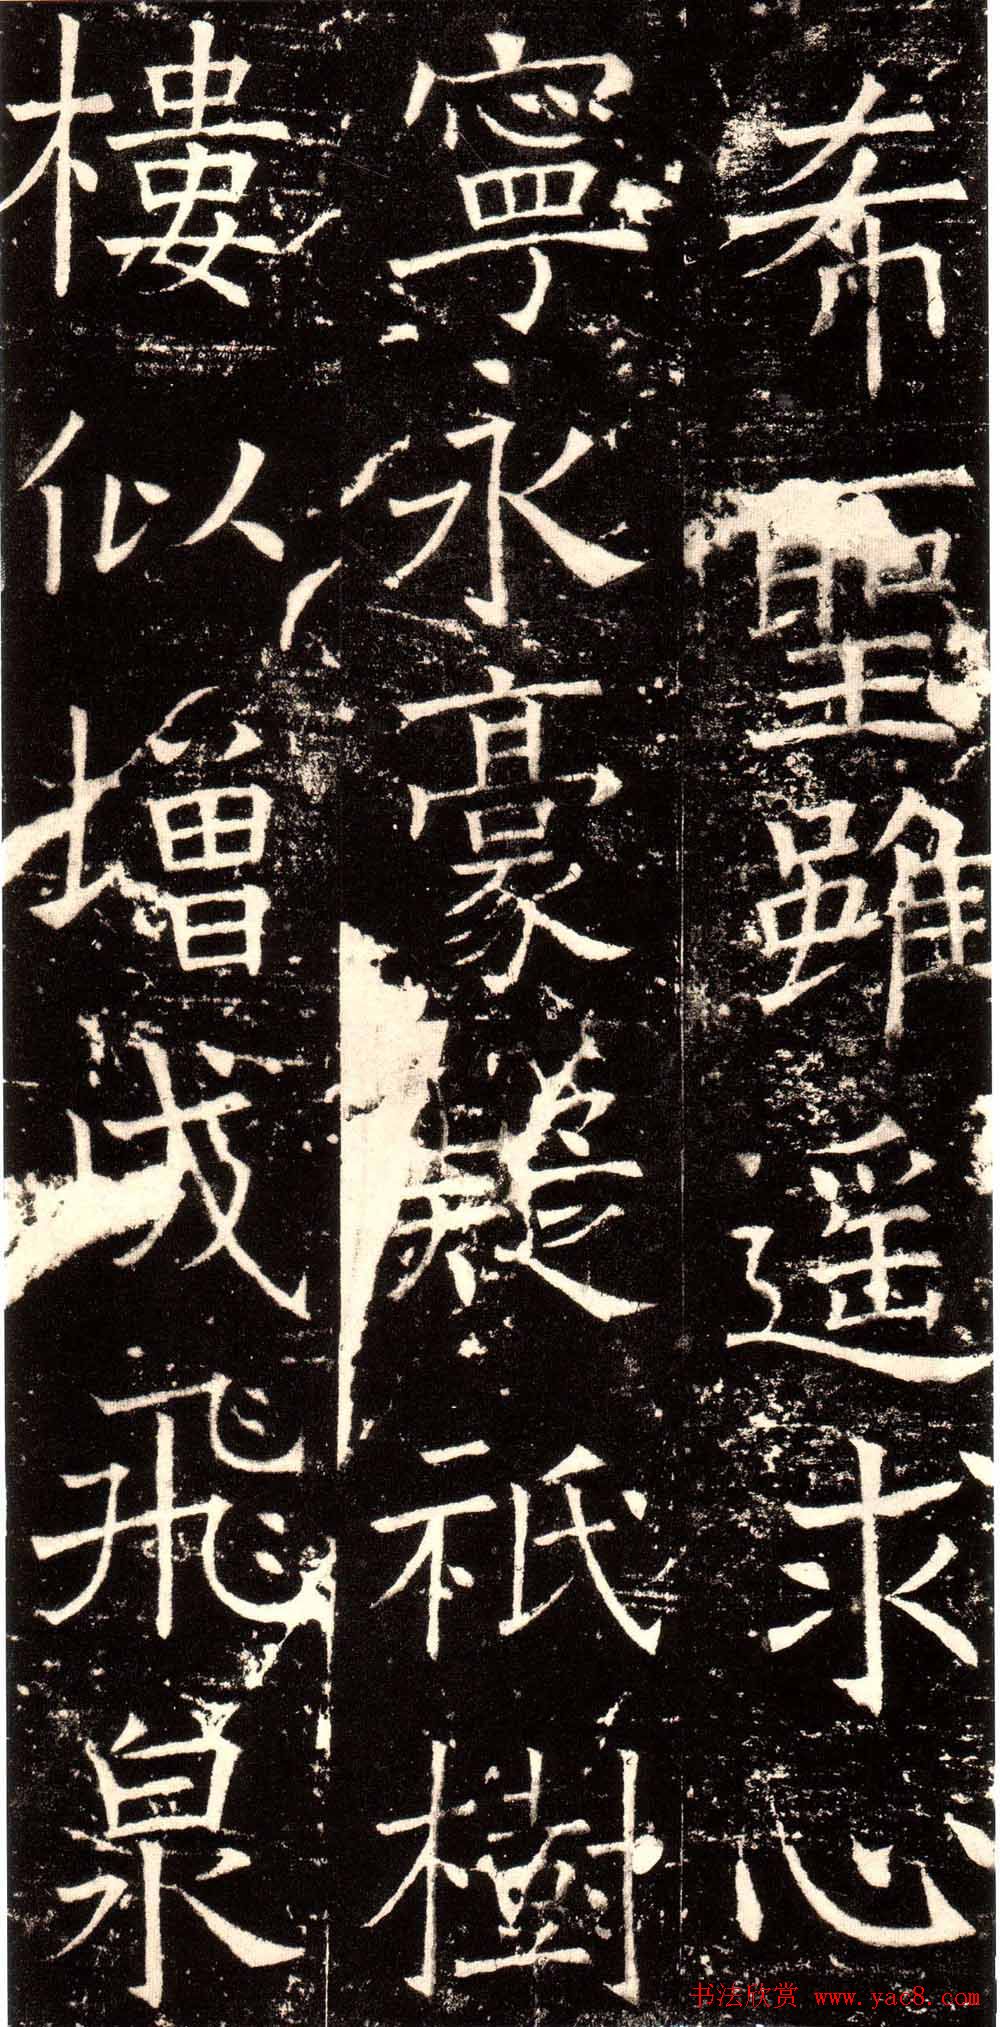 希聖雖遥求心
寧永豪疑祇樹
樓似增成飛泉
书法欣赏 www.yac8.com